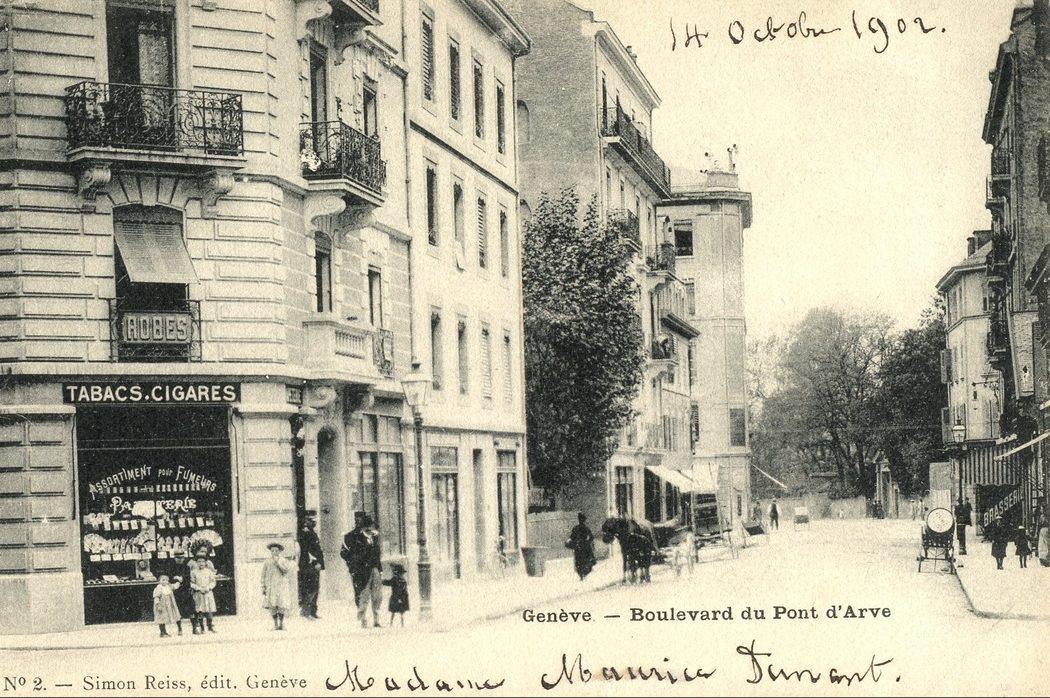 14 Octobre 1902.
ROBES
TABACS.CIGARES
ASSORTIMENT POUR FUMEURS
PAPETERIE
BRASSERIE
Genève. — Boulevard du Pont d'Arve
Nº 2. — Simon Reiss, édit. Genève
Madame Maurice Dunant.